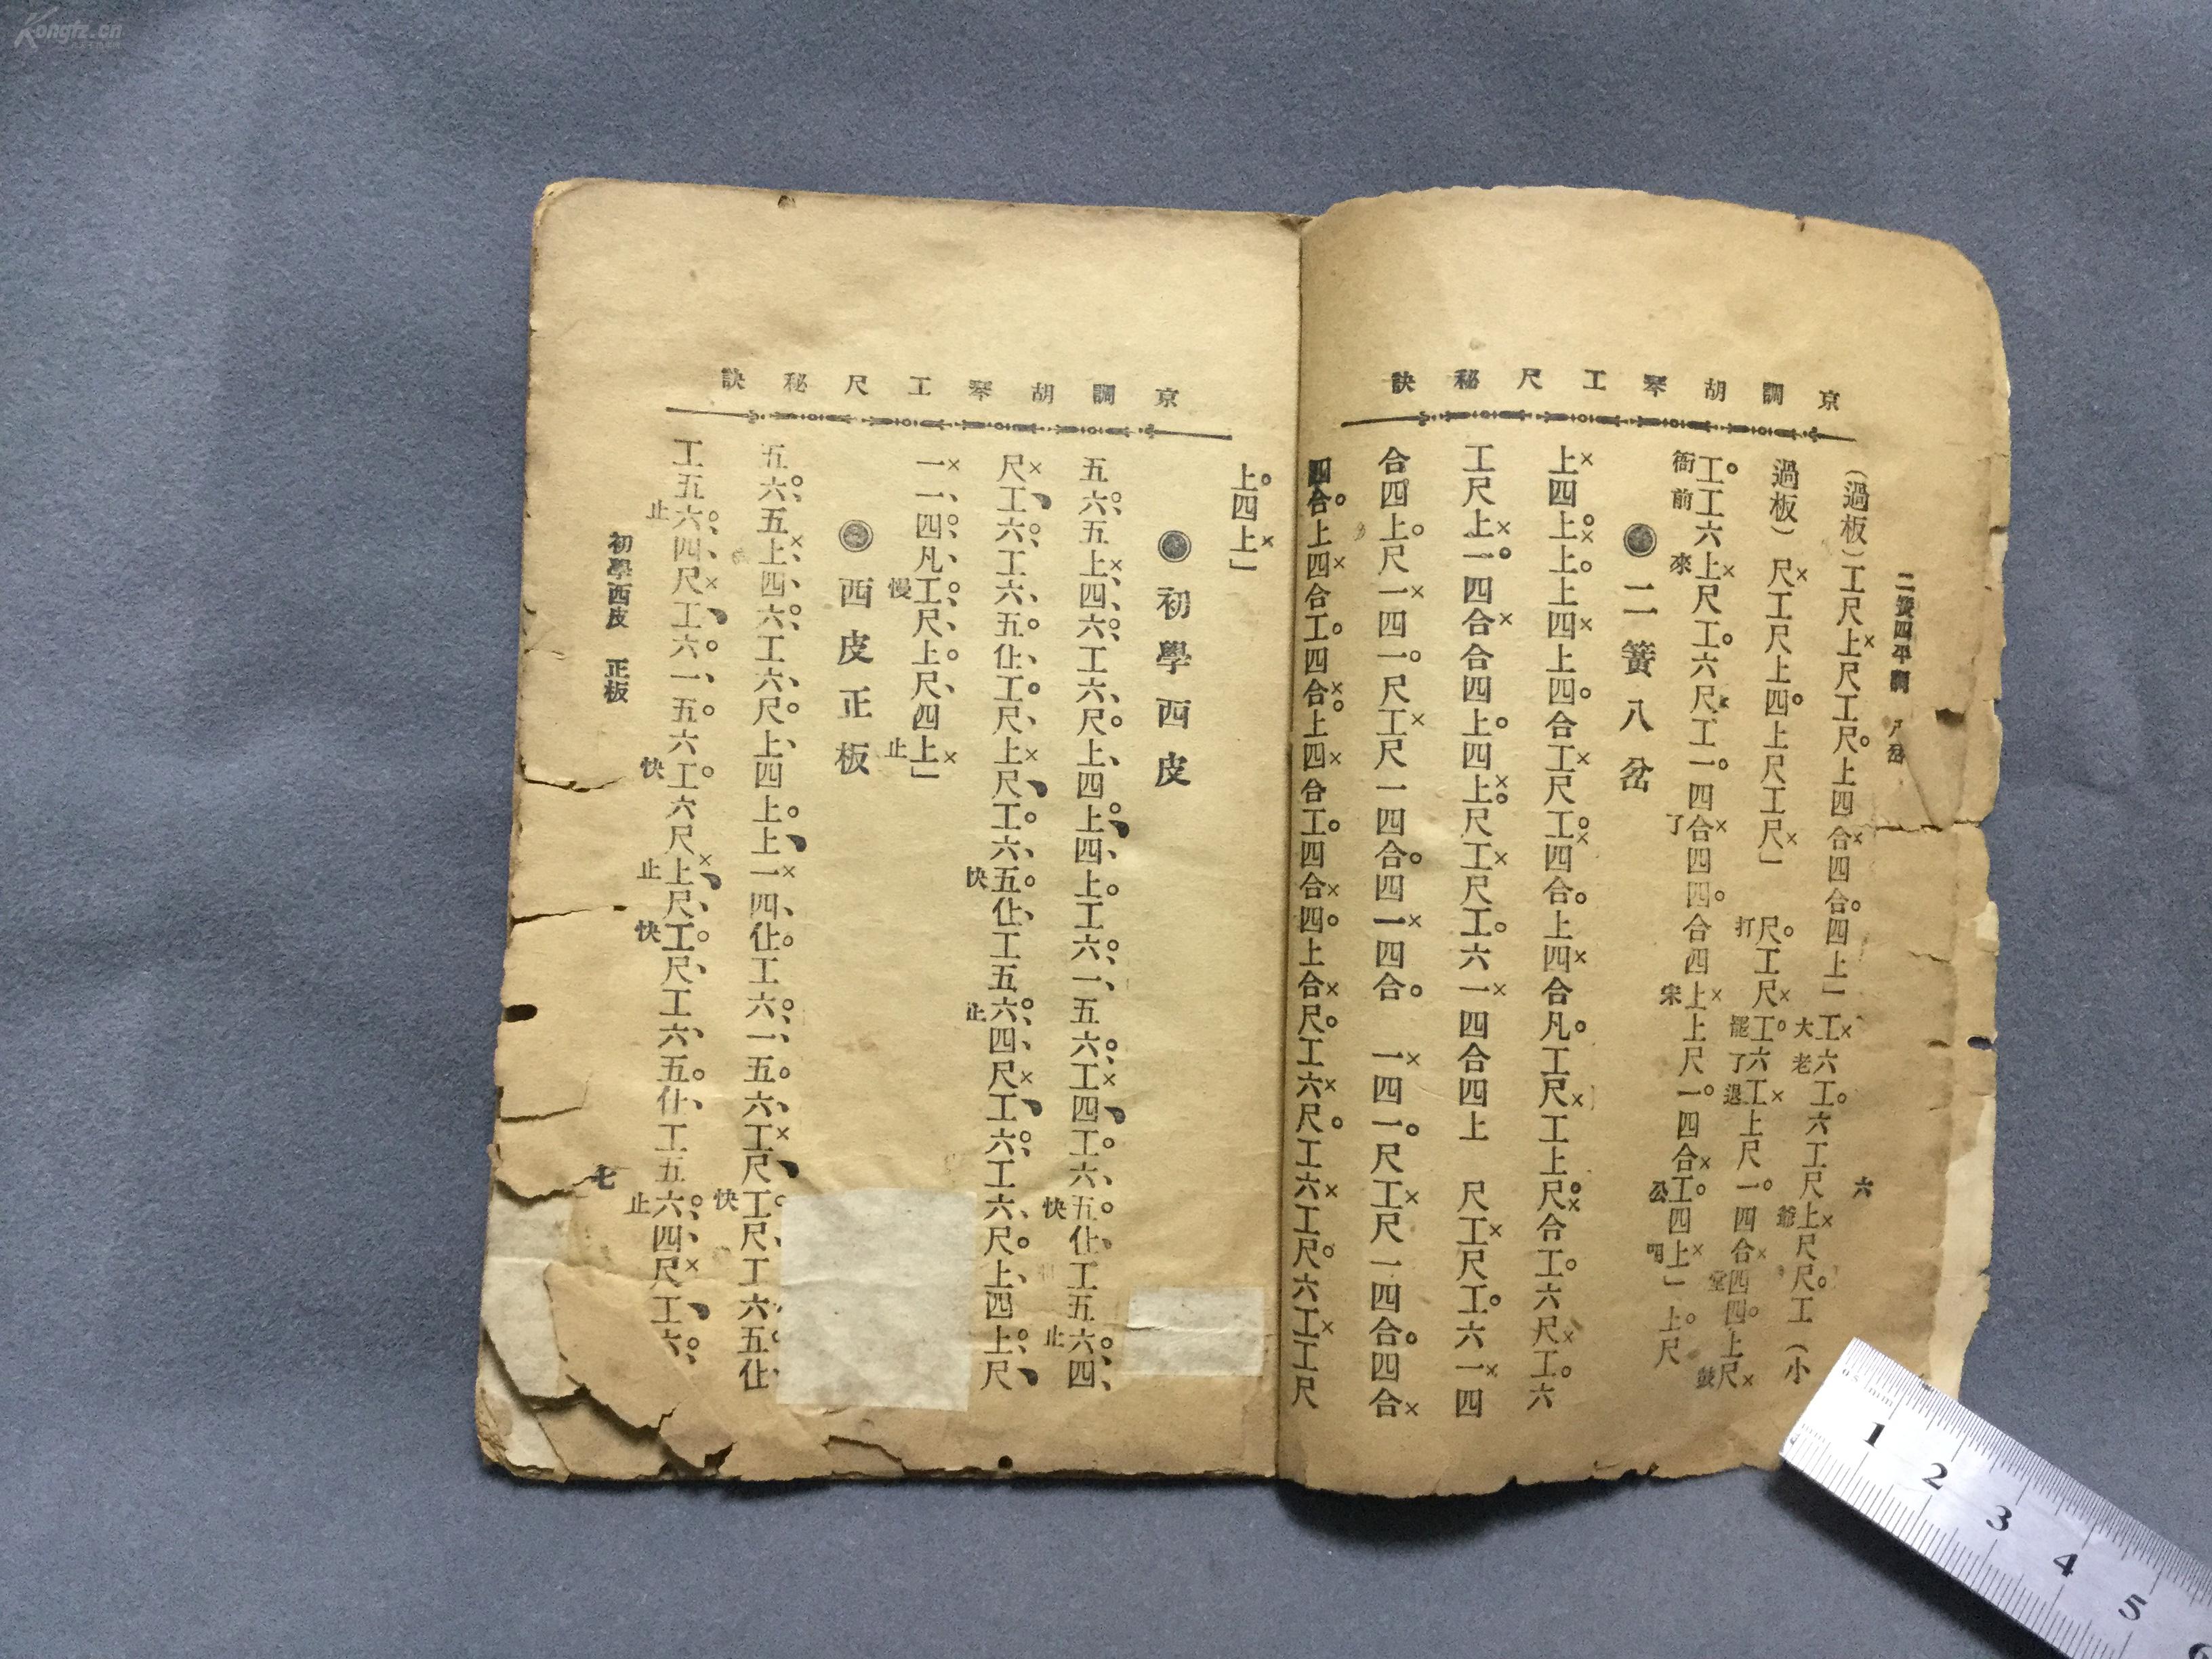 Kongfz.cn
京調胡琴工尺秘訣
二簧四平調 八岔
六
(過板)工尺上尺工尺上四合四合四上一工六工六工尺上尺尺工(小
大老爺
過板)尺工尺上四上尺工尺」尺工尺工六工上尺一四合四四上尺
打罷了退堂鼓
工工六上尺工六尺工一四合四四合四上上尺一四合工四上」上尺
衙前來了宋公明
二簧八岔
上四上上上四上四合工尺工四合上四合凡工尺工上尺合工六尺工六
工尺上一四合合四上四上尺工尺工六一四合四上 尺工尺工六一四
合四上尺一四一尺工尺一四合四一四合 一四一尺工尺一四合四合
四合上四合工四合上四合工四合四上合尺工六尺工六工尺六工工尺
京調胡琴工尺秘訣
上四上」
初學西皮
五六五上四六工六尺上四上四上工六一五六工四工六五仩工五六四
快止
尺工六工六五仩工尺上尺工六五仩工五六四尺工六工六尺上四上尺
快止
一一四凡工尺上尺四上」
慢止
西皮正板
五六五上四六工六尺上四上上一四仩工六一五六工尺工尺工六五仩
快
工五六四尺工六一五六工六尺上尺工尺工六五仩工五六四尺工六
止快止快止
初學西皮 正板
七
1
2
3
4
5